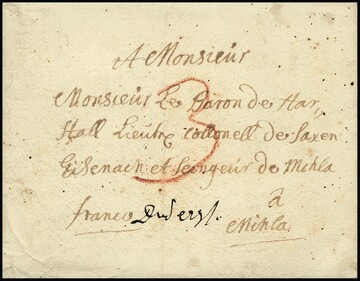 A Monsieur
Monsieur Le Baron de Har„
Hall Lieut: Collonell de Saxen
Eisenach et Seingeur de Mihla
3
franco Duderst.
â
Mihla.